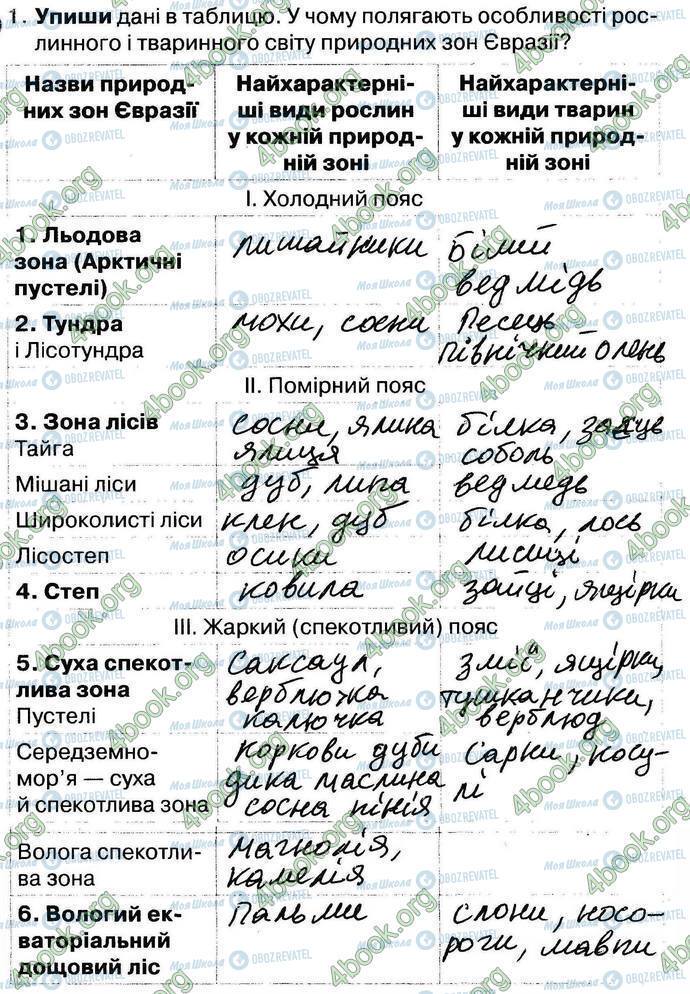 1. Упиши дані в таблицю. У чому полягають особливості рос-
линного і тваринного світу природних зон Євразії?
Назви природ-
них зон Євразії
Найхарактерні-
ші види рослин
у кожній природ-
ній зоні
Найхарактерні-
ші види тварин
у кожній природ-
ній зоні
І. Холодний пояс
1. Льодова
зона (Арктичні
пустелі)
лишайники
Білий
ведмідь
2. Тундра
і Лісотундра
мохи, сосни
Песець
північний олень
ІІ. Помірний пояс
3. Зона лісів
Тайга
сосни, ялина
ялиця
білка, заєць
соболь
Мішані ліси
дуб, липа
ведмедь
Широколисті ліси
клен, дуб
білка, лось
Лісостеп
осики
лисиці
4. Степ
ковила
зайці, ящірки
ІІІ. Жаркий (спекотливий) пояс
5. Суха спекот-
лива зона
Пустелі
Саксаул,
верблюжа
калючка
змії, ящірки,
тушканчики,
верблюд
Середземно-
мор’я — суха
й спекотлива зона
коркови дуби
дика маслина
сосна пінія
Сарни, косу-
лі
Волога спекотли-
ва зона
магнолія,
камелія
6. Вологий ек-
ваторіальний
дощовий ліс
Пальми
слони, носо-
роги, мавпи
4book.org
МояШкола OBOZREVATEL